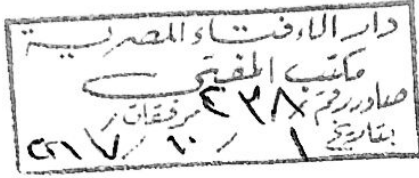 دار الإفتاء المصرية
مكتب المفتي
صادر رقم / ٤٣٨ مرفقات /
بتاريخ ١ / ١٠ / ٢٠١٧